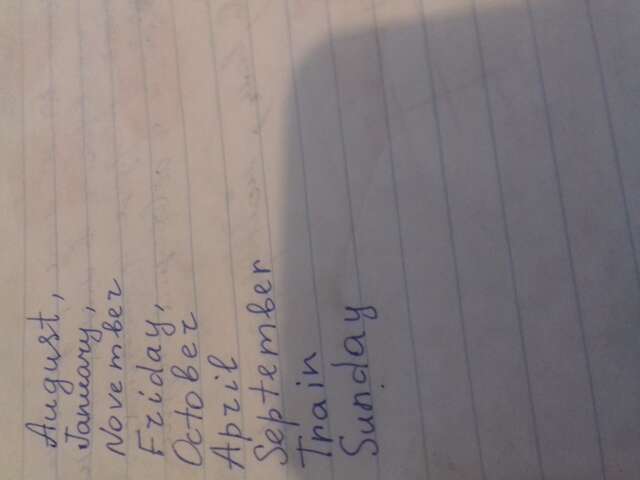 August,
January,
November
Friday,
October
April
September
Train
Sunday